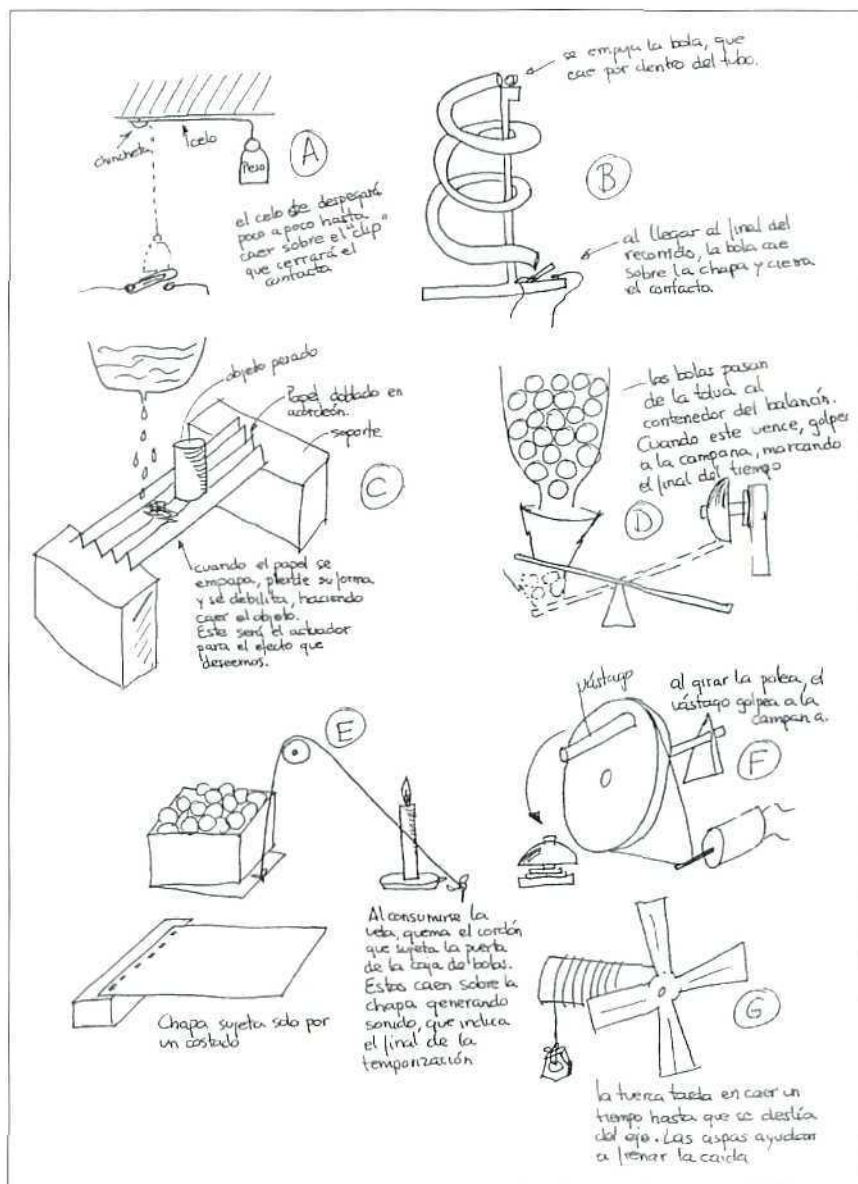 chincheta
celo
Peso
A
el celo se despegará
poco a poco hasta
caer sobre el "clip"
que cerrará el
contacto
se empuja la bola, que
cae por dentro del tubo.
B
al llegar al final del
recorrido, la bola cae
sobre la chapa y cierra
el contacto
objeto pesado
Papel doblado en
acordeón.
soporte
C
cuando el papel se
empapa, pierde su forma
y se debilita, haciendo
caer el objeto.
Este será el actuador
para el efecto que
deseemos.
las bolas pasan
de la tolva al
contenedor del balancín.
Cuando este vence, golpea
a la campana, marcando
el final del tiempo
D
E
Al consumirse la
vela, quema el cordón
que sujeta la puerta
de la caja de bolas.
Estas caen sobre la
chapa generando
sonido, que indica
el final de la
temporización
Chapa sujeta solo por
un costado
vástago
al girar la polea, el
vástago golpea a la
campana.
F
G
la tuerca tarda en caer un
tiempo hasta que se deslía
del eje. Las aspas ayudan
a frenar la caída